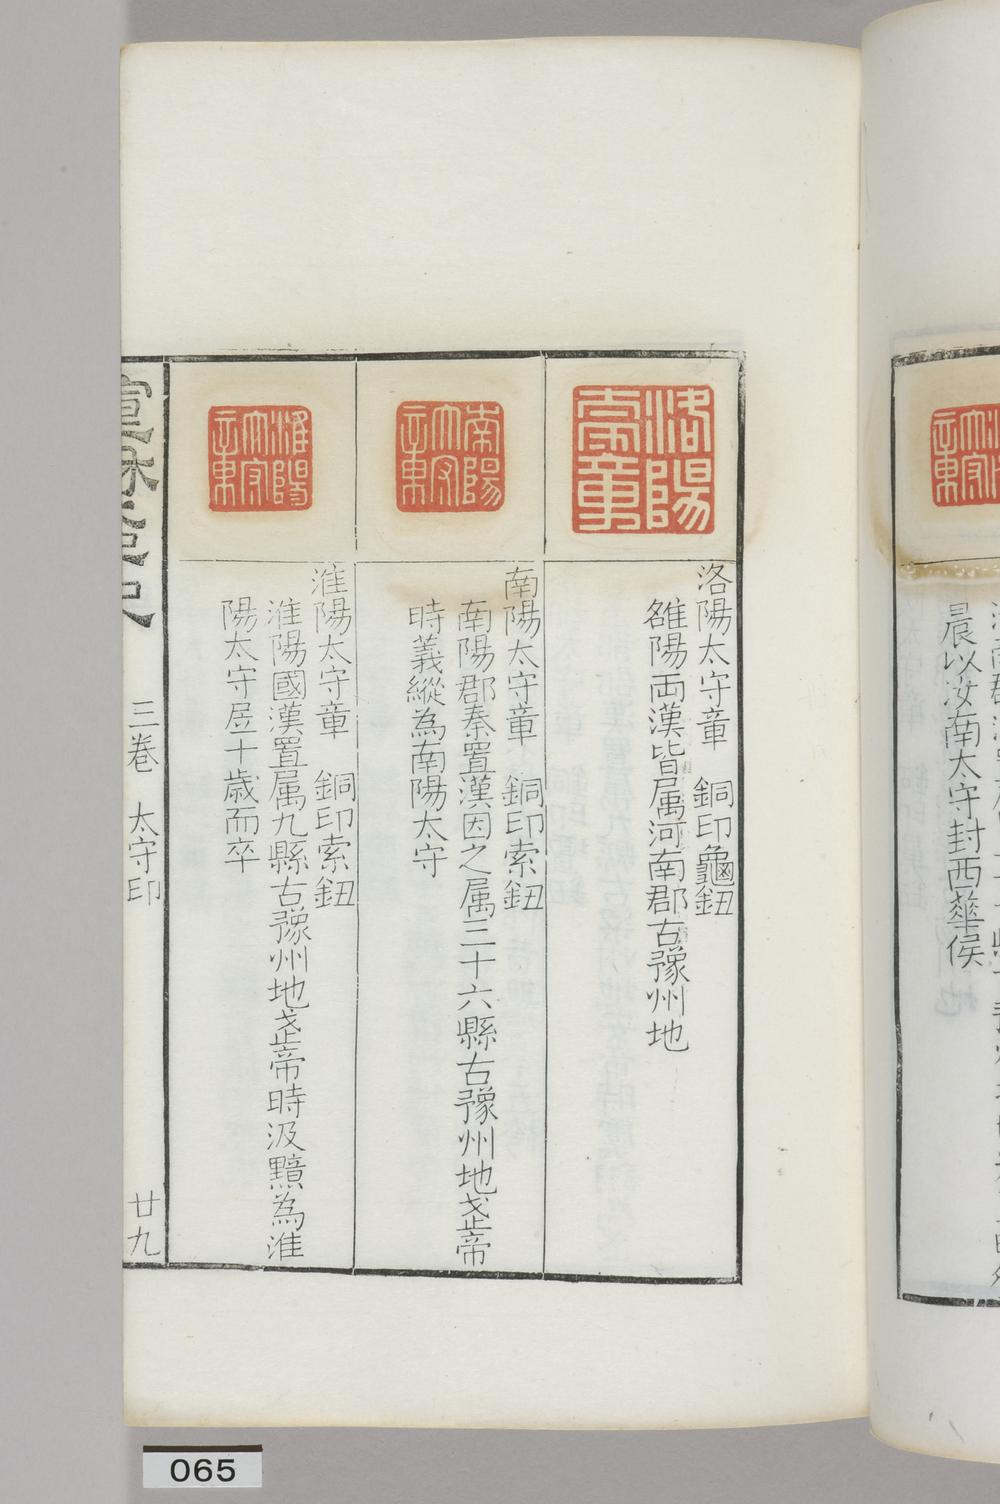 晨以汝南太守封西華侯
洛陽太守章　銅印龜鈕
雒陽兩漢皆属河南郡古豫州地
南陽太守章　銅印索鈕
南陽郡秦置漢因之属三十六縣古豫州地武帝
時義縱為南陽太守
淮陽太守章　銅印索鈕
淮陽國漢置属九縣古豫州地武帝時汲黯為淮
陽太守居十歳而卒
三巻　太守印
廿九
南陽太守章
淮陽太守章
065